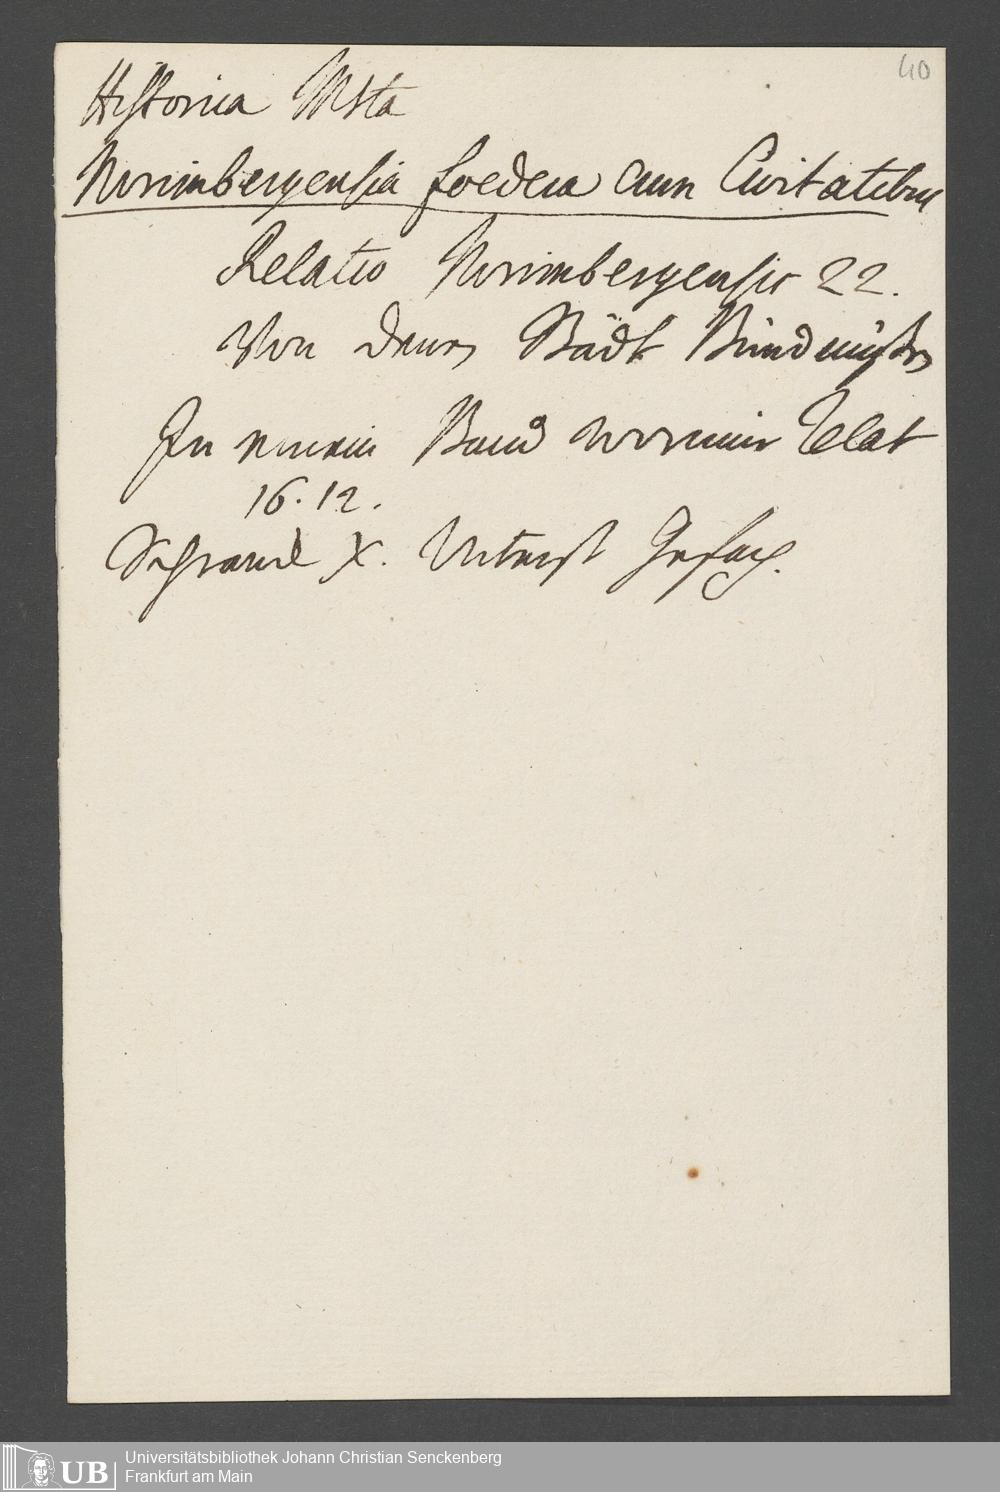 40
Historica Msta
Norimbergensia foedera cum Civitatibus
Relatio Norimbergensis 22.
Von denen Städt Bündnüßen
In einem Band worinnen Relat
16.12.
Schranck X. Unterst Gefach.
UB Universitätsbibliothek Johann Christian Senckenberg
Frankfurt am Main